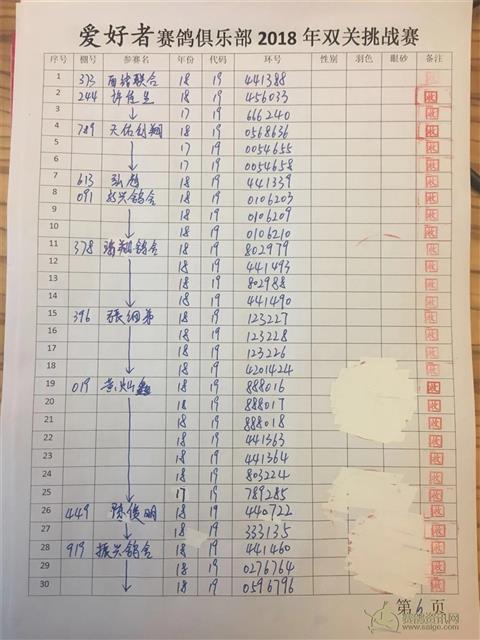 爱好者赛鸽俱乐部 2018 年双关挑战赛
序号 棚号 参赛名 年份 代码 环号 性别 羽色 眼砂 备注
1 373 联合 18 19 441388
2 244 许佳生 18 19 456033
3 17 19 666240
4 789 天佑创翔 18 19 0568636
5 17 19 0054655
6 17 19 0054658
7 613 弘翔 18 19 441339
8 091 兴鸽舍 18 19 0106203
9 18 19 0106209
10 18 19 0106210
11 378 鸽舍 18 19 802979
12 18 19 441493
13 18 19 802988
14 18 19 441490
15 396 张细弟 18 19 123227
16 18 19 123228
17 18 19 123226
18 18 19 4201424
19 019 黄灿鑫 18 19 888016
20 18 19 888017
21 18 19 888018
22 18 19 441363
23 18 19 441364
24 18 19 803224
25 17 19 789285
26 449 陈俊明 18 19 440722
27 18 19 333135
28 919 振兴鸽舍 18 19 441460
29 18 19 0276764
30 18 19 0596796
第 6 页
赛鸽资讯网
www.saige.com